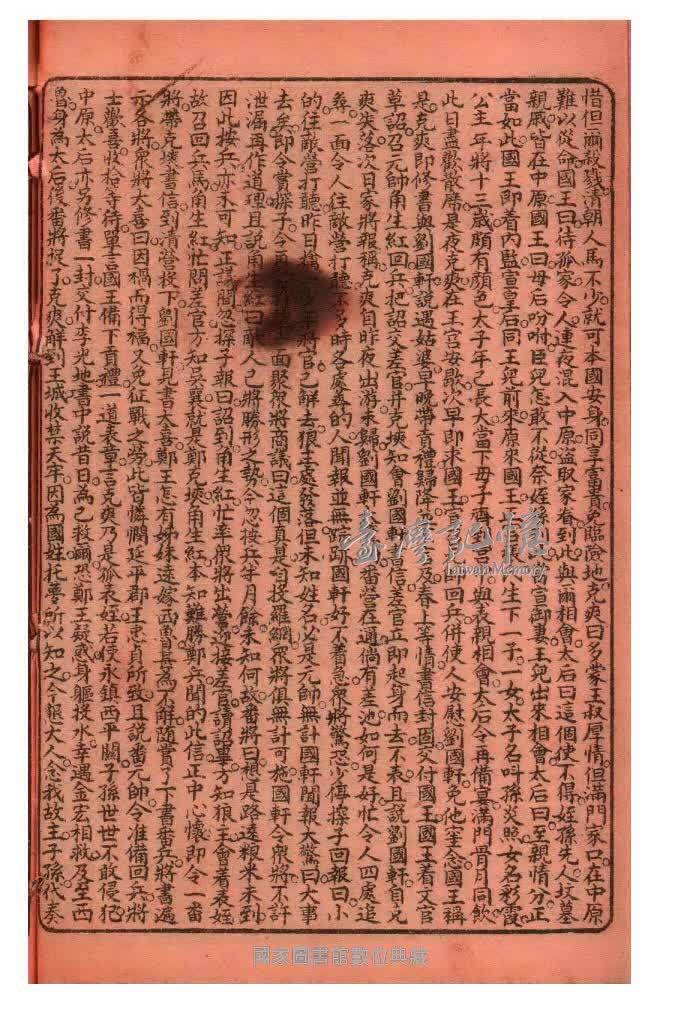 惜但爾殺戮清朝人馬不少就可本國安身同享富貴免臨險地克爽曰多蒙王叔厚情但滿門家口在中原
難以從命國王曰待孤家令人連夜混入中原盜取家眷到此與爾相會太后曰這個使不得姪孫先人坟墓
親戚皆在中原國王曰母后吩咐臣兒怎敢不從奈姪孫 當宣御妻王兒出來相會太后曰至親情分正
當如此國王即着內監宣皇后同王兒前來原來國王 生下一子一女太子名叫孫炎照女名彩霞
公主年將十三歲頗有顏色太子年已長大當下母子 與表親相會太后令再備宴滿門骨月同飲
此日盡歡散席是夜克爽在王宮安歇次早即求國王 即回兵併使人安慰劉國軒免他望念國王稱
是克爽即修書與劉國軒說遇姑婆早晚帶貢禮歸降 及春上等情書信封固交付國王國王看文官
草詔召元帥角生紅回兵把詔交差官并克爽知會劉國軒 信差官立即起身而去不表且說劉國軒自克
爽失落次日家將報稱克爽自昨夜出游未歸劉國軒 番營在邇倘有差池如何是好忙令人四處追
尋一面令人往敵營打聽不多時各處尋的人聞報並無踪跡國軒好不着急眾將驚恐少停探子回報曰小
的往敵營打聽昨日擒 將官已解去狼主處發落但未知姓名必是元帥無計國軒聞報大驚曰大事
去矣即令賞探子令再 面聚眾將商議曰這個真是自投羅網眾將俱無計可施國軒令眾將不許
泄漏再作道理且說角生紅曰敵人已將勝形之勢今忽按兵半月餘未知何故番將曰想是路遠粮米未到
因此按兵亦未可知正議間忽探子報曰詔到角生紅忙率眾將出營迎接差官讀詔畢方知狼主會着表姪
故召回兵馬角生紅忙問差官方知吳真就是鄭克爽角生紅本知難勝鄭兵聞的此信正中心懷即令一番
將帶克爽書信到清營投下劉國軒見書大喜鄭王怎有姊妹遠嫁西魯真為不解隨賞了下書番兵將書遍
示各將眾將大喜曰因禍而得福又免征戰之勞此皆憐憫延平郡王忠貞所致且說番元帥令准備回兵將
士歡喜收拾等待單言國王備下貢禮一道表章言克爽乃是孤表姪若使永鎮西平關子孫世世不敢侵犯
中原太后亦另修書一封交付李光地書中說昔日為己救爾恐鄭王疑惑身軀投水幸遇金宏相救及至西
魯身為太后後番將捉了克爽解到王城收禁天牢因為國姓托夢所以知之今報大人念我故主子孫代奏
臺灣記憶
Taiwan Memory
國家圖書館數位典藏